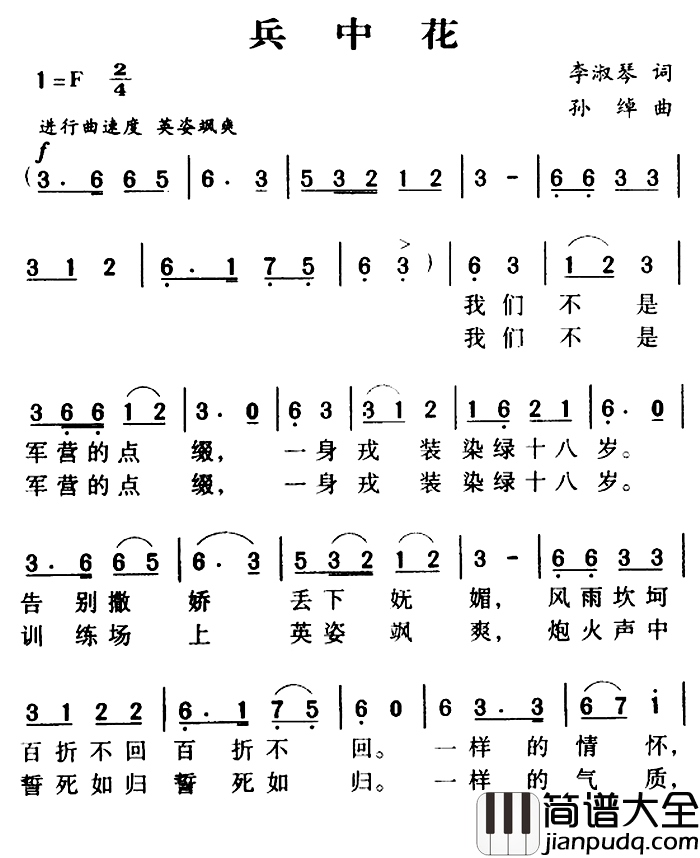 兵中花
1=F 2/4
李淑琴 词
孙绰 曲
进行曲速度 英姿飒爽
f
(3. 6 6 5 | 6. 3 | 5 3 2 1 2 | 3 - | 6 6 3 3 |
3 1 2 | 6. 1 7 5 | 6 3 ) | 6 3 | 1 2 3 |
我们不是
我们不是
3 6 6 1 2 | 3. 0 | 6 3 | 3 1 2 | 1 6 2 1 | 6. 0 |
军营的点缀，一身戎装染绿十八岁。
军营的点缀，一身戎装染绿十八岁。
3. 6 6 5 | 6. 3 | 5 3 2 1 2 | 3 - | 6 6 3 3 |
告别撒娇丢下妩媚，风雨坎坷
训练场上英姿飒爽，炮火声中
3 1 2 2 | 6. 1 7 5 | 6 0 | 6 3. 3 | 6 7 i |
百折不回百折不回。一样的情怀，
誓死如归誓死如归。一样的气质，
简谱大全
jianpudq.com